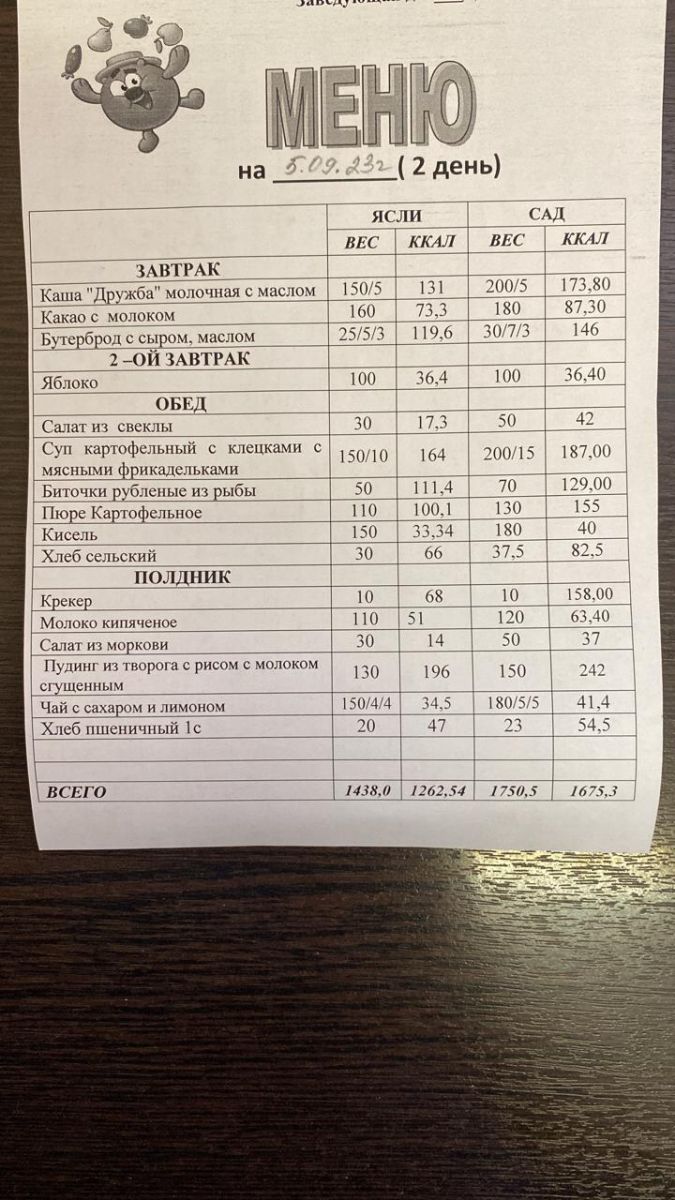 МЕНЮ
на 5.09.23г ( 2 день)
ЯСЛИ САД
ВЕС ККАЛ ВЕС ККАЛ
ЗАВТРАК
Каша "Дружба" молочная с маслом 150/5 131 200/5 173,80
Какао с молоком 160 73,3 180 87,30
Бутерброд с сыром, маслом 25/5/3 119,6 30/7/3 146
2 –ОЙ ЗАВТРАК
Яблоко 100 36,4 100 36,40
ОБЕД
Салат из свеклы 30 17,3 50 42
Суп картофельный с клецками с
мясными фрикадельками 150/10 164 200/15 187,00
Биточки рубленые из рыбы 50 111,4 70 129,00
Пюре Картофельное 110 100,1 130 155
Кисель 150 33,34 180 40
Хлеб сельский 30 66 37,5 82,5
ПОЛДНИК
Крекер 10 68 10 158,00
Молоко кипяченое 110 51 120 63,40
Салат из моркови 30 14 50 37
Пудинг из творога с рисом с молоком
сгущенным 130 196 150 242
Чай с сахаром и лимоном 150/4/4 34,5 180/5/5 41,4
Хлеб пшеничный 1с 20 47 23 54,5
ВСЕГО 1438,0 1262,54 1750,5 1675,3